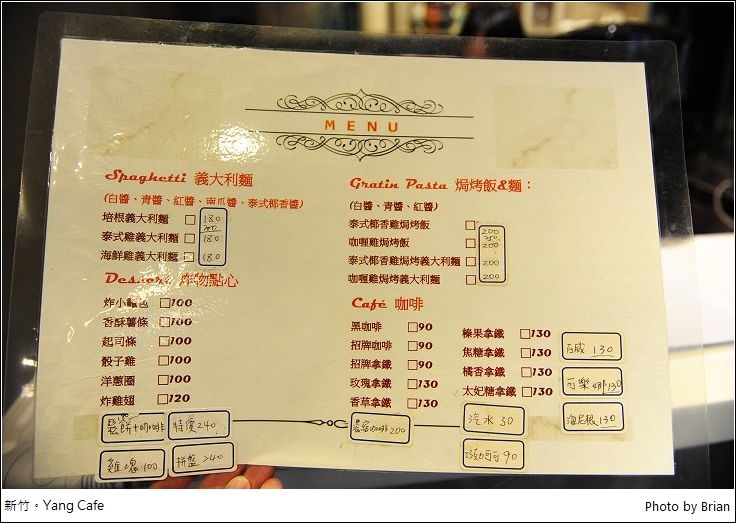 MENU
Spaghetti 義大利麵
(白醬、青醬、紅醬、南瓜醬、泰式椰香醬)
培根義大利麵 □ 180
泰式雞義大利麵 □ 180
海鮮雞義大利麵 □ 180
Dessert 炸物點心
炸小麵包 □100
香酥薯條 □100
起司條 □100
骰子雞 □100
洋蔥圈 □100
炸雞翅 □120
鬆餅+咖啡 特價240
雞塊100 拼盤240
Gratin Pasta 焗烤飯&麵：
(白醬、青醬、紅醬)
泰式椰香雞焗烤飯 □ 200
咖喱雞焗烤飯 □ 200
泰式椰香雞焗烤義大利麵 □ 200
咖喱雞焗烤義大利麵 □ 200
Café 咖啡
黑咖啡 □90
招牌咖啡 □90
招牌拿鐵 □90
玫瑰拿鐵 □130
香草拿鐵 □130
咖啡 200
榛果拿鐵 □130
焦糖拿鐵 □130
橘香拿鐵 □130
太妃糖拿鐵 □130
汽水 30
90
百威 130
可樂娜130
海尼根130
新竹。Yang Cafe
Photo by Brian